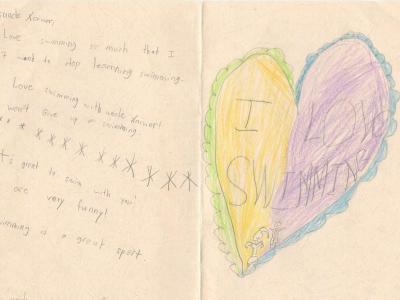 uncle Xavier,
Love swimming so much that I
want to stop learning swimming.
Love swimming with uncle Xavier!
won't give up on swimming
It's great to swim with you!
are very funny!
swimming is a great sport.
I LOVE
SWIMMING